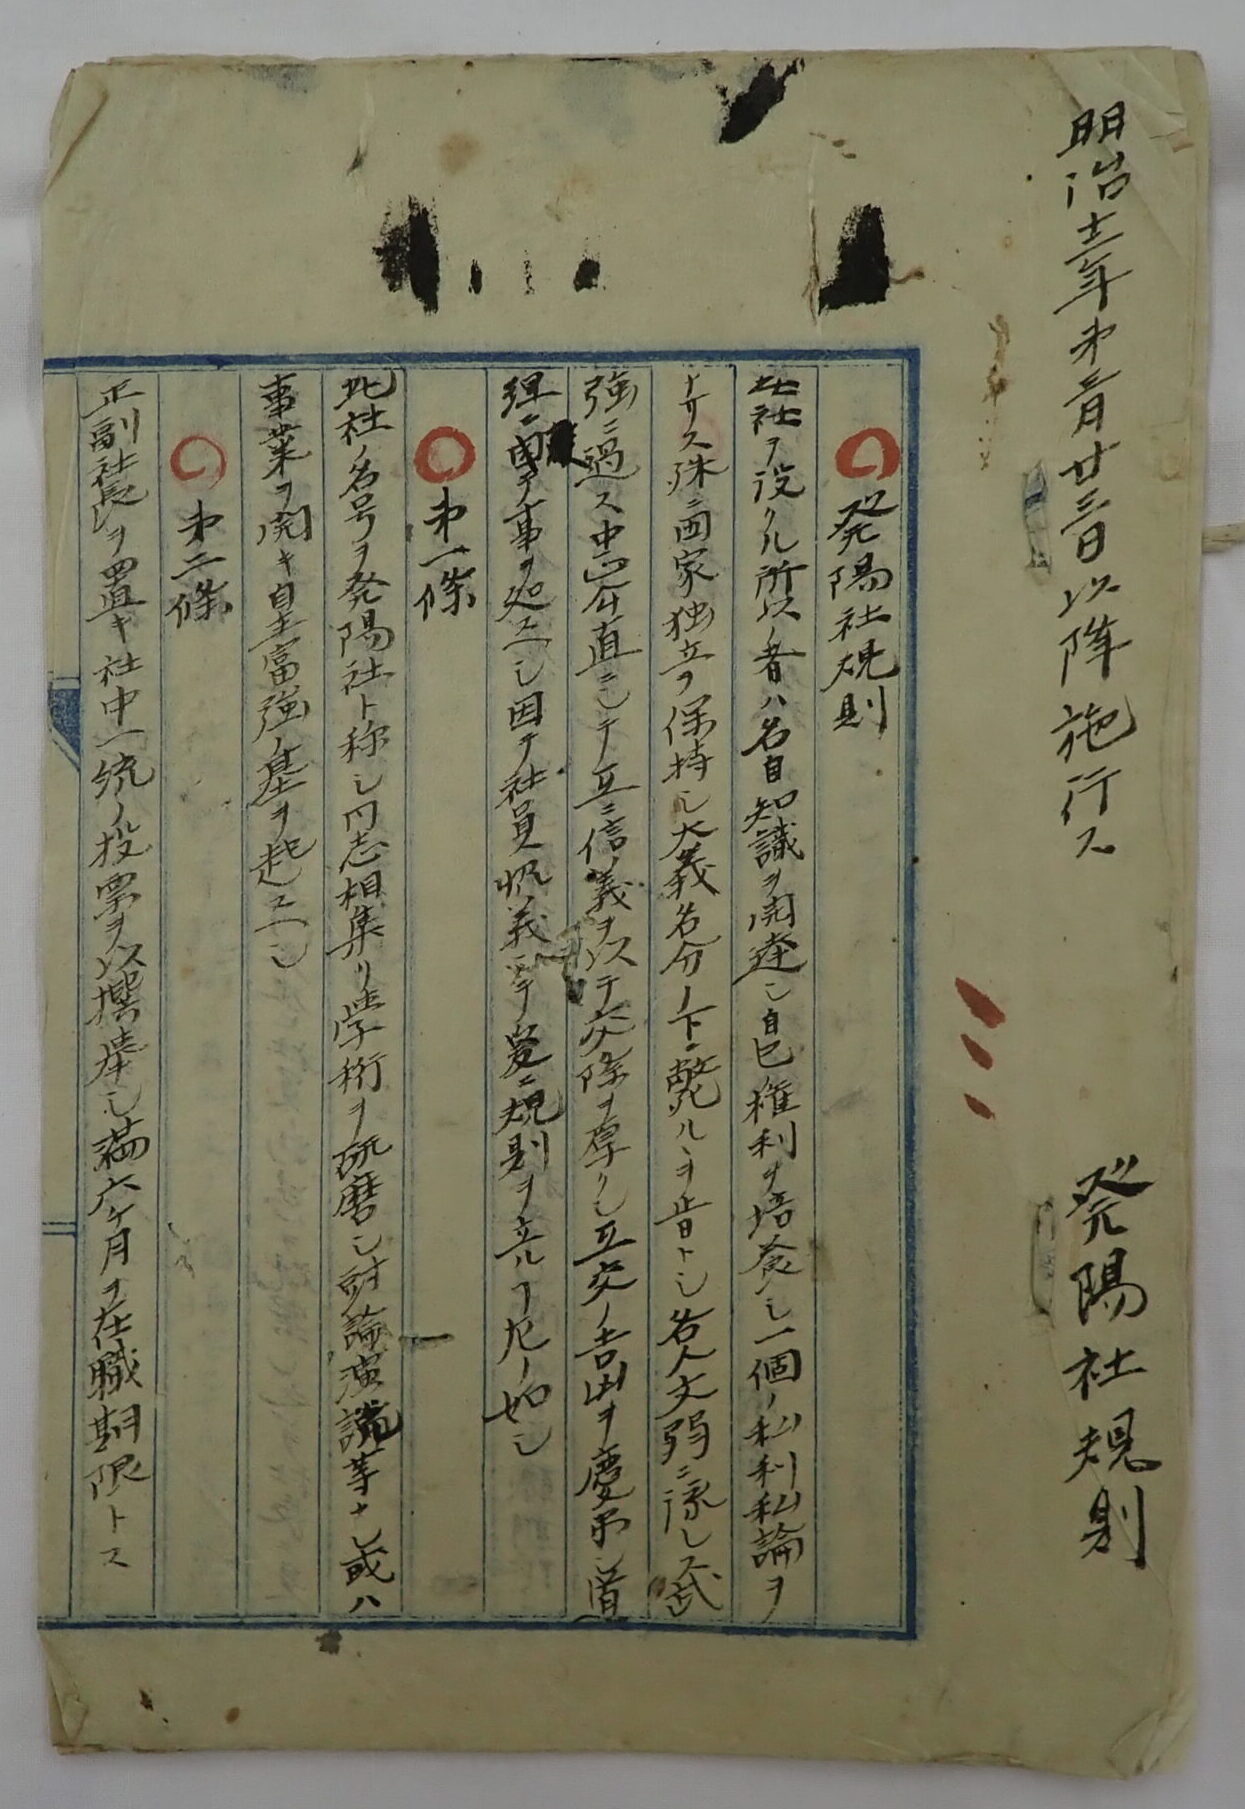 明治十三年第三月廿三日以降施行ス
発陽社規則
発陽社規則
此社ヲ设クル所以ノ者ハ各自知識ヲ開達シ自己権利ヲ培養シ一個ノ私利私論ヲ
ナサス殊ニ国家独立ヲ保持シ大義名分ノ下ニ斃ルヽヲ旨トシ各人文弱ニ流レス武
強ニ過ス忠 直ニシテ互ニ信義ヲ以テ交際ヲ厚クシ互交ノ吉凶ヲ慶弔シ道
理ニ テ事ヲ処スヘシ因テ社員 義 爰ニ規則ヲ立ルヿ左ノ如シ
第一條
此社ノ名号ヲ発陽社ト称シ同志相集リ学術ヲ研磨シ討論演説等ナシ或ハ
事業ヲ開キ自主富強ノ基ヲ起スヘシ
第二條
正副社長ヲ置キ社中一統ノ投票ヲ以撰挙シ満六ケ月ヲ在職期限トス